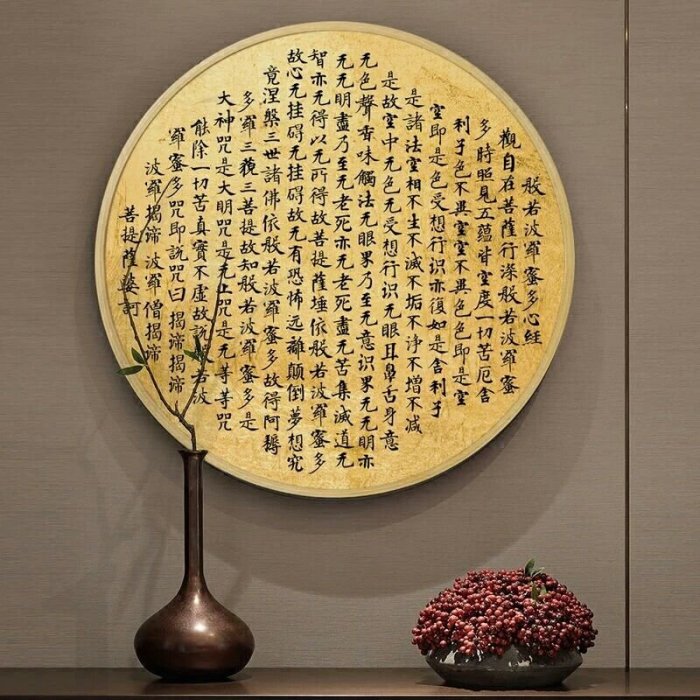 般若波羅蜜多心経
觀自在菩薩行深般若波羅蜜
多時照見五蘊皆空度一切苦厄舍
利子色不異空空不異色色即是空
空即是色受想行識亦復如是舍利子
是諸法空相不生不滅不垢不淨不增不減
是故空中无色无受想行識无眼耳鼻舌身意
无色聲香味觸法无眼界乃至无意識界无无明亦
无无明盡乃至无老死亦无老死盡无苦集滅道无
智亦无得以无所得故菩提薩埵依般若波羅蜜多
故心无挂碍无挂碍故无有恐怖远離顛倒夢想究
竟涅槃三世諸佛依般若波羅蜜多故得阿耨
多羅三藐三菩提故知般若波羅蜜多是
大神咒是大明咒是无上咒是无等等咒
能除一切苦真實不虛故說般若波
羅蜜多咒即說咒曰 揭諦揭諦
波羅揭諦 波羅僧揭諦
菩提薩婆訶